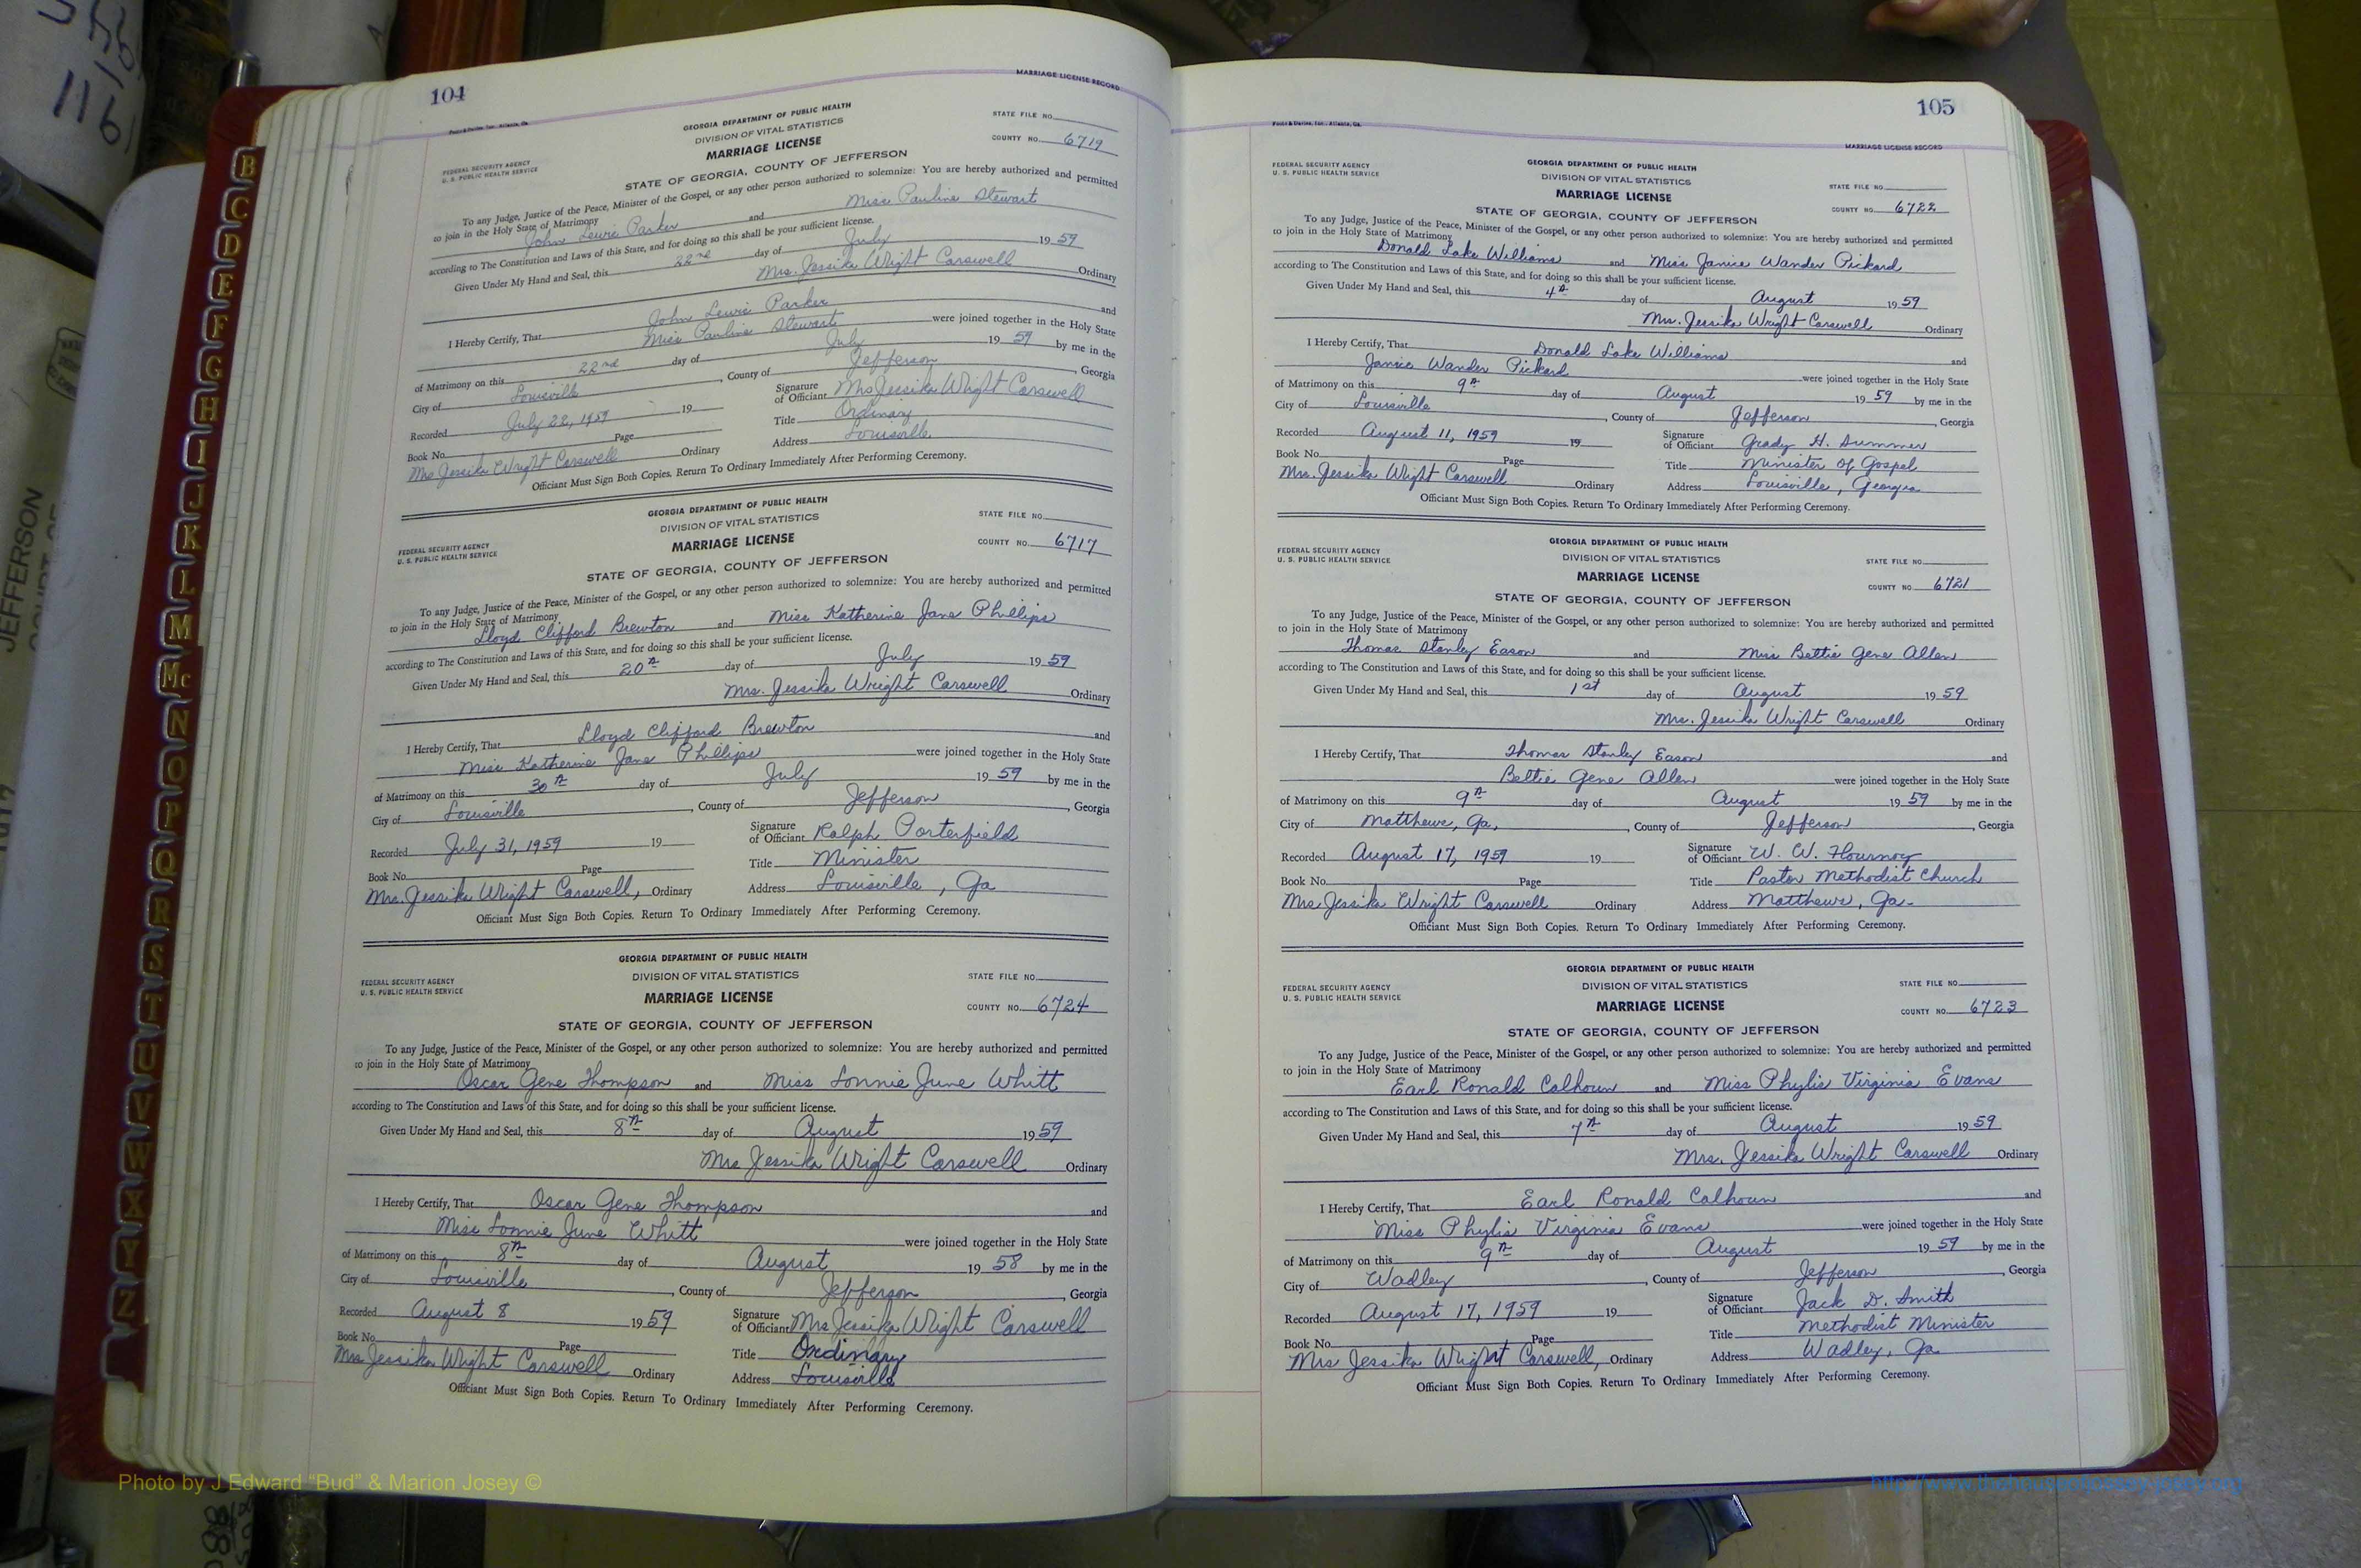 104
MARRIAGE LICENSE RECORD
Foote & Davies, Inc., Atlanta, Ga.
GEORGIA DEPARTMENT OF PUBLIC HEALTH
DIVISION OF VITAL STATISTICS
MARRIAGE LICENSE
STATE OF GEORGIA, COUNTY OF JEFFERSON
FEDERAL SECURITY AGENCY
U. S. PUBLIC HEALTH SERVICE
STATE FILE NO.
COUNTY NO. 6719
To any Judge, Justice of the Peace, Minister of the Gospel, or any other person authorized to solemnize: You are hereby authorized and permitted
to join in the Holy State of Matrimony
John Lewis Parker and Miss Pauline Stewart
according to The Constitution and Laws of this State, and for doing so this shall be your sufficient license.
Given Under My Hand and Seal, this 22nd day of July 19 59
Mrs. Jessika Wright Carswell Ordinary
I Hereby Certify, That John Lewis Parker and
Miss Pauline Stewart were joined together in the Holy State
of Matrimony on this 22nd day of July 19 59 by me in the
City of Louisville, County of Jefferson, Georgia
Recorded July 22, 1959 19
Signature of Officiant Mrs Jessika Wright Carswell
Book No. Page
Title Ordinary
Mrs Jessika Wright Carswell Ordinary
Address Louisville
Officiant Must Sign Both Copies. Return To Ordinary Immediately After Performing Ceremony.
GEORGIA DEPARTMENT OF PUBLIC HEALTH
DIVISION OF VITAL STATISTICS
MARRIAGE LICENSE
STATE OF GEORGIA, COUNTY OF JEFFERSON
FEDERAL SECURITY AGENCY
U. S. PUBLIC HEALTH SERVICE
STATE FILE NO.
COUNTY NO. 6717
To any Judge, Justice of the Peace, Minister of the Gospel, or any other person authorized to solemnize: You are hereby authorized and permitted
to join in the Holy State of Matrimony
Lloyd Clifford Brewton and Miss Katherine Jane Phillips
according to The Constitution and Laws of this State, and for doing so this shall be your sufficient license.
Given Under My Hand and Seal, this 20th day of July 19 59
Mrs. Jessika Wright Carswell Ordinary
I Hereby Certify, That Lloyd Clifford Brewton and
Miss Katherine Jane Phillips were joined together in the Holy State
of Matrimony on this 30th day of July 19 59 by me in the
City of Louisville, County of Jefferson, Georgia
Recorded July 31, 1959 19
Signature of Officiant Ralph Porterfield
Book No. Page
Title Minister
Mrs. Jessika Wright Carswell, Ordinary
Address Louisville, Ga
Officiant Must Sign Both Copies. Return To Ordinary Immediately After Performing Ceremony.
GEORGIA DEPARTMENT OF PUBLIC HEALTH
DIVISION OF VITAL STATISTICS
MARRIAGE LICENSE
STATE OF GEORGIA, COUNTY OF JEFFERSON
FEDERAL SECURITY AGENCY
U. S. PUBLIC HEALTH SERVICE
STATE FILE NO.
COUNTY NO. 6724
To any Judge, Justice of the Peace, Minister of the Gospel, or any other person authorized to solemnize: You are hereby authorized and permitted
to join in the Holy State of Matrimony
Oscar Gene Thompson and Miss Lonnie June Whitt
according to The Constitution and Laws of this State, and for doing so this shall be your sufficient license.
Given Under My Hand and Seal, this 8th day of August 19 59
Mrs Jessika Wright Carswell Ordinary
I Hereby Certify, That Oscar Gene Thompson and
Miss Lonnie June Whitt were joined together in the Holy State
of Matrimony on this 8th day of August 19 58 by me in the
City of Louisville, County of Jefferson, Georgia
Recorded August 8 19 59
Signature of Officiant Mrs Jessika Wright Carswell
Book No. Page
Title Ordinary
Mrs Jessika Wright Carswell Ordinary
Address Louisville
Officiant Must Sign Both Copies. Return To Ordinary Immediately After Performing Ceremony.
105
MARRIAGE LICENSE RECORD
Foote & Davies, Inc., Atlanta, Ga.
GEORGIA DEPARTMENT OF PUBLIC HEALTH
DIVISION OF VITAL STATISTICS
MARRIAGE LICENSE
STATE OF GEORGIA, COUNTY OF JEFFERSON
FEDERAL SECURITY AGENCY
U. S. PUBLIC HEALTH SERVICE
STATE FILE NO.
COUNTY NO. 6722
To any Judge, Justice of the Peace, Minister of the Gospel, or any other person authorized to solemnize: You are hereby authorized and permitted
to join in the Holy State of Matrimony
Donald Lake Williams and Miss Janice Wander Pickard
according to The Constitution and Laws of this State, and for doing so this shall be your sufficient license.
Given Under My Hand and Seal, this 4th day of August 19 59
Mrs. Jessika Wright Carswell Ordinary
I Hereby Certify, That Donald Lake Williams and
Janice Wander Pickard were joined together in the Holy State
of Matrimony on this 9th day of August 19 59 by me in the
City of Louisville, County of Jefferson, Georgia
Recorded August 11, 1959 19
Signature of Officiant Grady H. Summer
Book No. Page
Title Minister of Gospel
Mrs. Jessika Wright Carswell Ordinary
Address Louisville, Georgia
Officiant Must Sign Both Copies. Return To Ordinary Immediately After Performing Ceremony.
GEORGIA DEPARTMENT OF PUBLIC HEALTH
DIVISION OF VITAL STATISTICS
MARRIAGE LICENSE
STATE OF GEORGIA, COUNTY OF JEFFERSON
FEDERAL SECURITY AGENCY
U. S. PUBLIC HEALTH SERVICE
STATE FILE NO.
COUNTY NO. 6721
To any Judge, Justice of the Peace, Minister of the Gospel, or any other person authorized to solemnize: You are hereby authorized and permitted
to join in the Holy State of Matrimony
Thomas Stanley Eason and Miss Bettie Gene Allen
according to The Constitution and Laws of this State, and for doing so this shall be your sufficient license.
Given Under My Hand and Seal, this 1st day of August 19 59
Mrs. Jessika Wright Carswell Ordinary
I Hereby Certify, That Thomas Stanley Eason and
Bettie Gene Allen were joined together in the Holy State
of Matrimony on this 9th day of August 19 59 by me in the
City of Matthews, Ga., County of Jefferson, Georgia
Recorded August 17, 1959 19
Signature of Officiant W. W. Flournoy
Book No. Page
Title Pastor Methodist Church
Mrs Jessika Wright Carswell Ordinary
Address Matthews, Ga.
Officiant Must Sign Both Copies. Return To Ordinary Immediately After Performing Ceremony.
GEORGIA DEPARTMENT OF PUBLIC HEALTH
DIVISION OF VITAL STATISTICS
MARRIAGE LICENSE
STATE OF GEORGIA, COUNTY OF JEFFERSON
FEDERAL SECURITY AGENCY
U. S. PUBLIC HEALTH SERVICE
STATE FILE NO.
COUNTY NO. 6723
To any Judge, Justice of the Peace, Minister of the Gospel, or any other person authorized to solemnize: You are hereby authorized and permitted
to join in the Holy State of Matrimony
Earl Ronald Calhoun and Miss Phylis Virginia Evans
according to The Constitution and Laws of this State, and for doing so this shall be your sufficient license.
Given Under My Hand and Seal, this 7th day of August 19 59
Mrs. Jessika Wright Carswell Ordinary
I Hereby Certify, That Earl Ronald Calhoun and
Miss Phylis Virginia Evans were joined together in the Holy State
of Matrimony on this 9th day of August 19 59 by me in the
City of Wadley, County of Jefferson, Georgia
Recorded August 17, 1959 19
Signature of Officiant Jack D. Smith
Book No. Page
Title Methodist Minister
Mrs Jessika Wright Carswell, Ordinary
Address Wadley, Ga
Officiant Must Sign Both Copies. Return To Ordinary Immediately After Performing Ceremony.
B
C
D
E
F
G
H
I
J
K
L
M
Mc
N
O
P
Q
R
S
T
U
V
W
X
Y
Z
JEFFERSON
Photo by J Edward “Bud” & Marion Josey ©